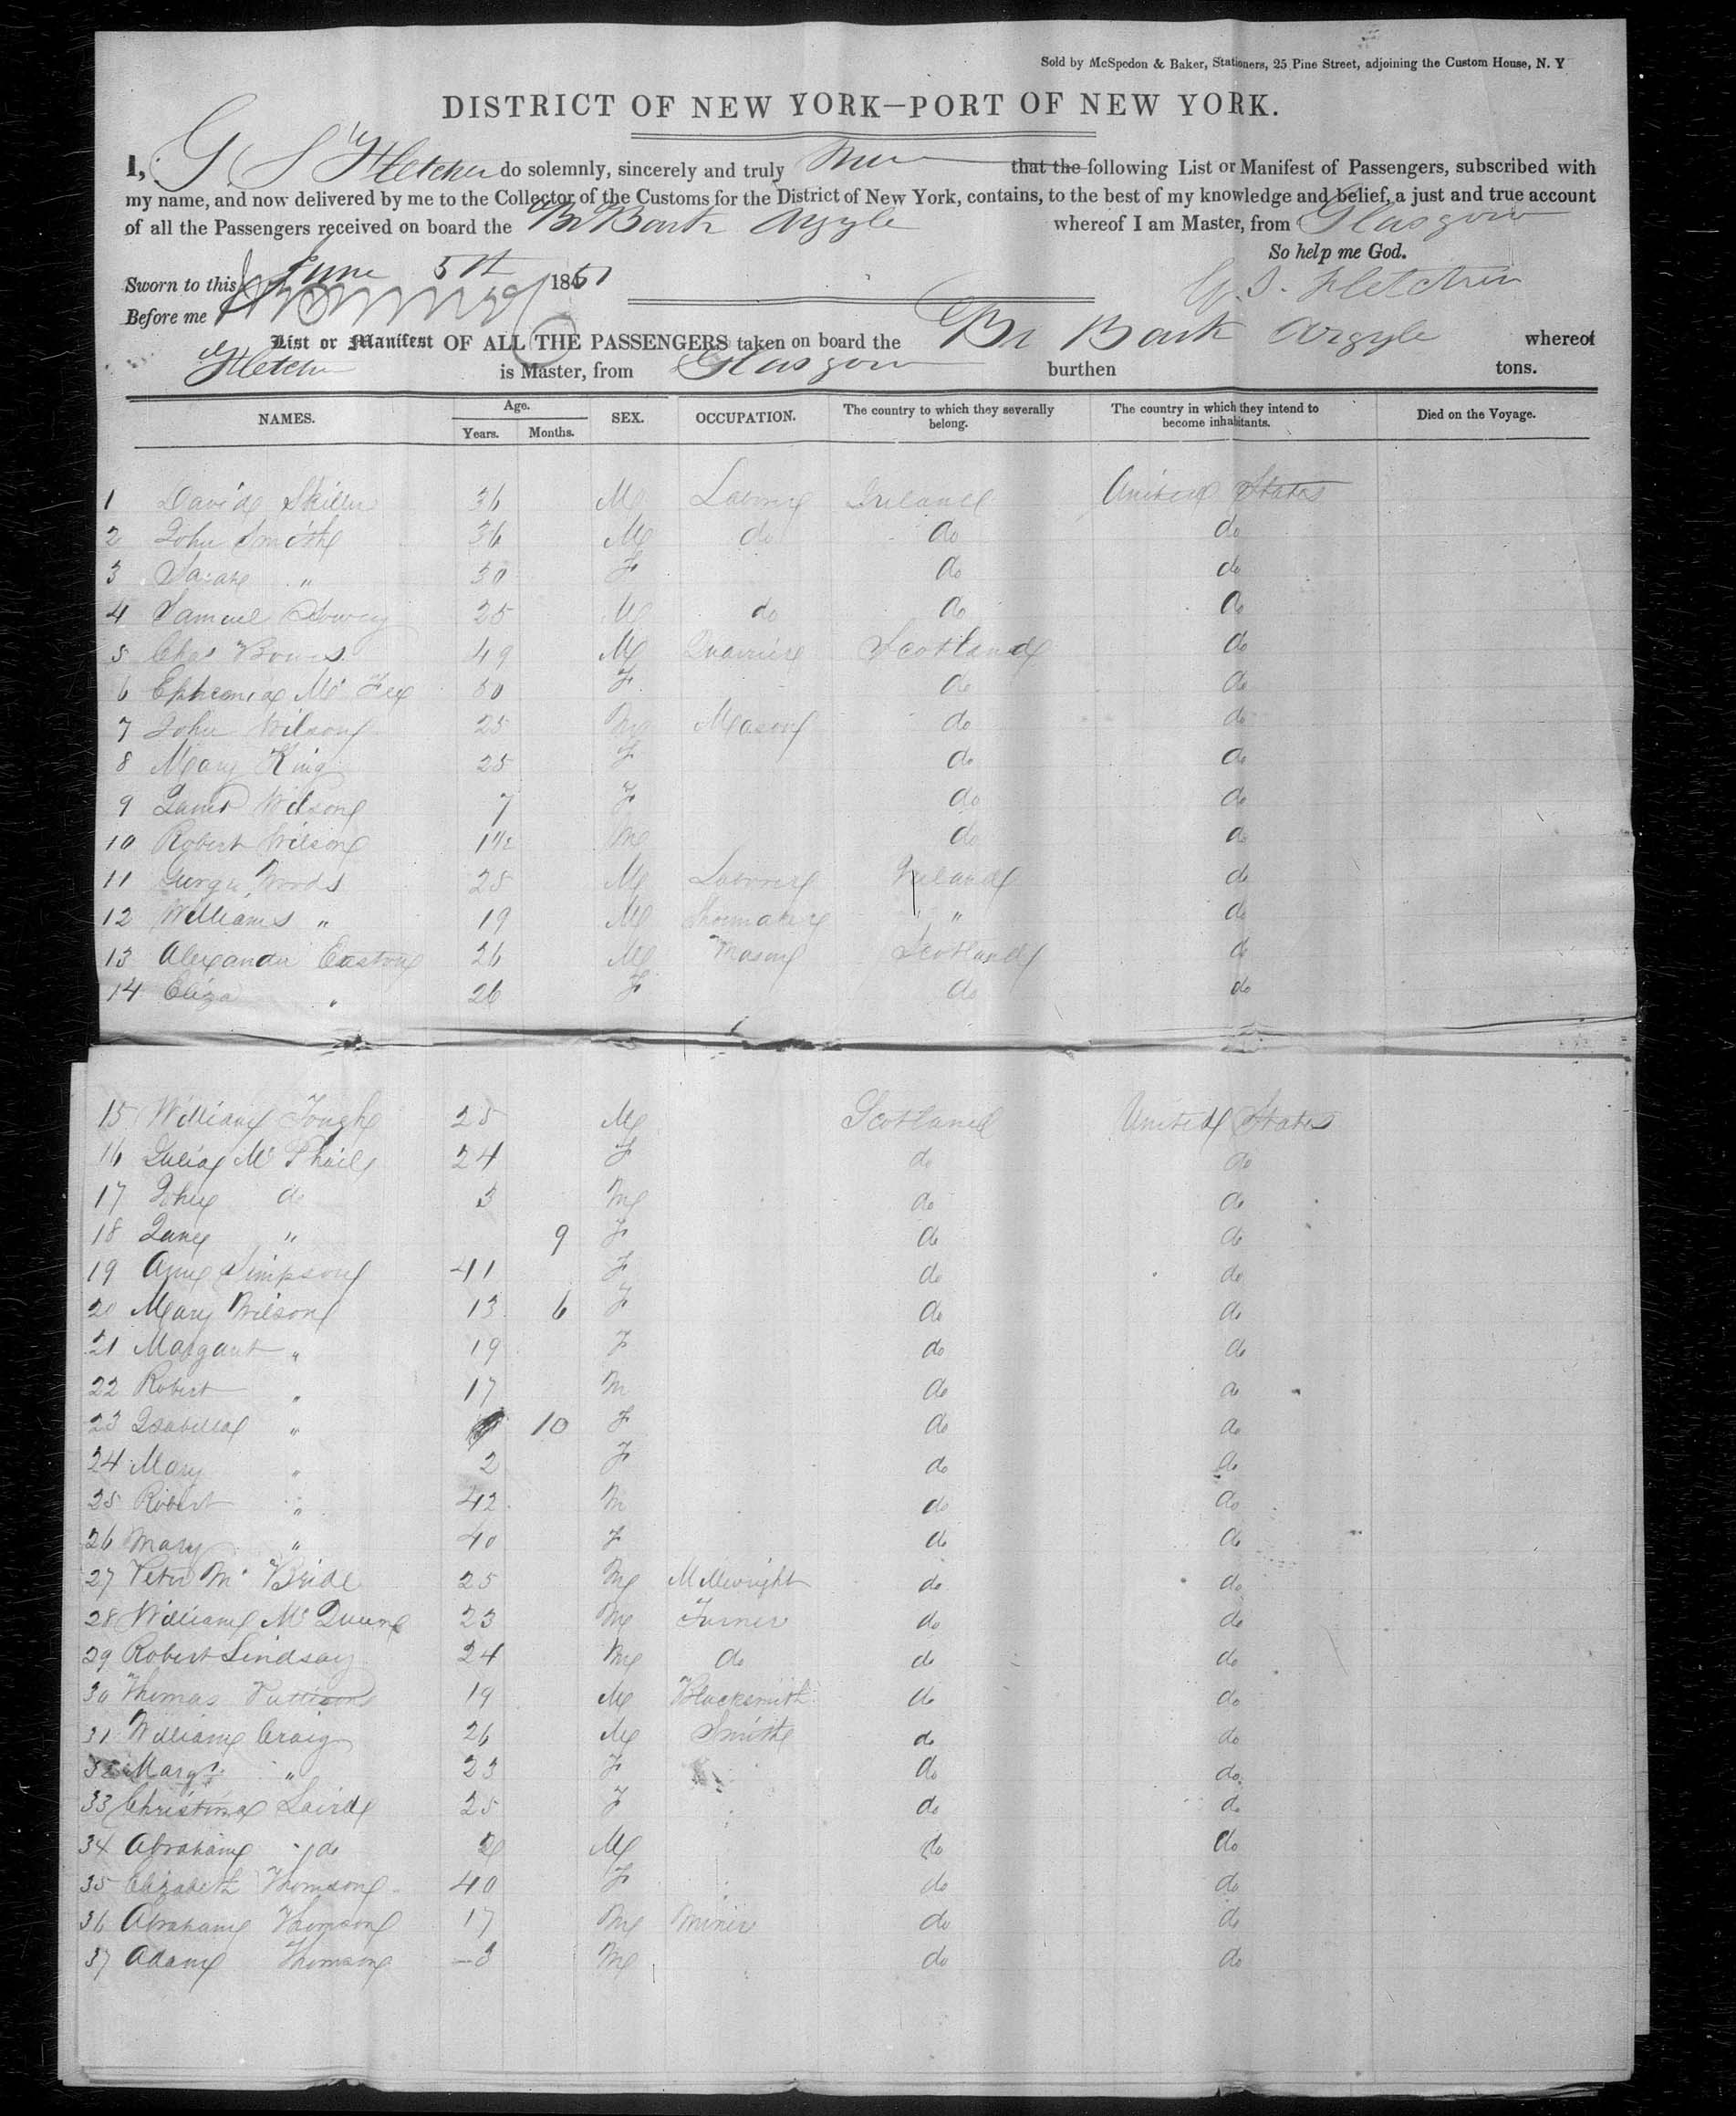 Sold by McSpedon & Baker, Stationers, 25 Pine Street, adjoining the Custom House, N. Y
DISTRICT OF NEW YORK—PORT OF NEW YORK.
I, G S Fletcher do solemnly, sincerely and truly that the following List or Manifest of Passengers, subscribed with
my name, and now delivered by me to the Collector of the Customs for the District of New York, contains, to the best of my knowledge and belief, a just and true account
of all the Passengers received on board the Br Bark Argyle whereof I am Master, from Glasgow
So help me God.
Sworn to this June 5th 1851 G. S. Fletcher
Before me
List or Manifest OF ALL THE PASSENGERS taken on board the Br Bark Argyle whereof
Fletcher is Master, from Glasgow burthen tons.
NAMES. Age. Years. Months. SEX. OCCUPATION. The country to which they severally belong. The country in which they intend to become inhabitants. Died on the Voyage.
1 David 36 M Laborer Ireland United States
2 John Smith 36 M do do do
3 Sarah " 30 F do do
4 Samuel 25 M do do do
5 Chas 49 M Scotland do
6 Ephemia Mc Fee 50 F do do
7 John Wilson 25 M Mason do do
8 Mary King 25 F do do
9 Janet Wilson 7 F do do
10 Robert Wilson 1 1/2 M do do
11 George Woods 25 M Laborer Ireland do
12 William " 19 M Shoemaker " do
13 Alexander Easton 26 M Mason Scotland do
14 Eliza " 26 F do do
15 William Tough 25 M Scotland United States
16 Julia Mc Phail 24 F do do
17 John do 3 M do do
18 Jane " 9 F do do
19 Ann Simpson 41 F do do
20 Mary Wilson 13 6 F do do
21 Margaret " 19 F do do
22 Robert " 17 M do do
23 Isabella " 10 F do do
24 Mary " 2 F do do
25 Robert " 42 M do do
26 Mary " 40 F do do
27 Peter Mc Bride 25 M Millwright do do
28 William Mc 23 M Turner do do
29 Robert Lindsay 24 M do do do
30 Thomas Pattison 19 M Blacksmith do do
31 William Craig 26 M Smith do do
32 Margt " 23 F do do
33 Christina Laird 25 F do do
34 Abraham do M do do
35 Elizabeth Thomson 40 F do do
36 Abraham Thomson 17 M Miner do do
37 Adam Thomson 3 M do do